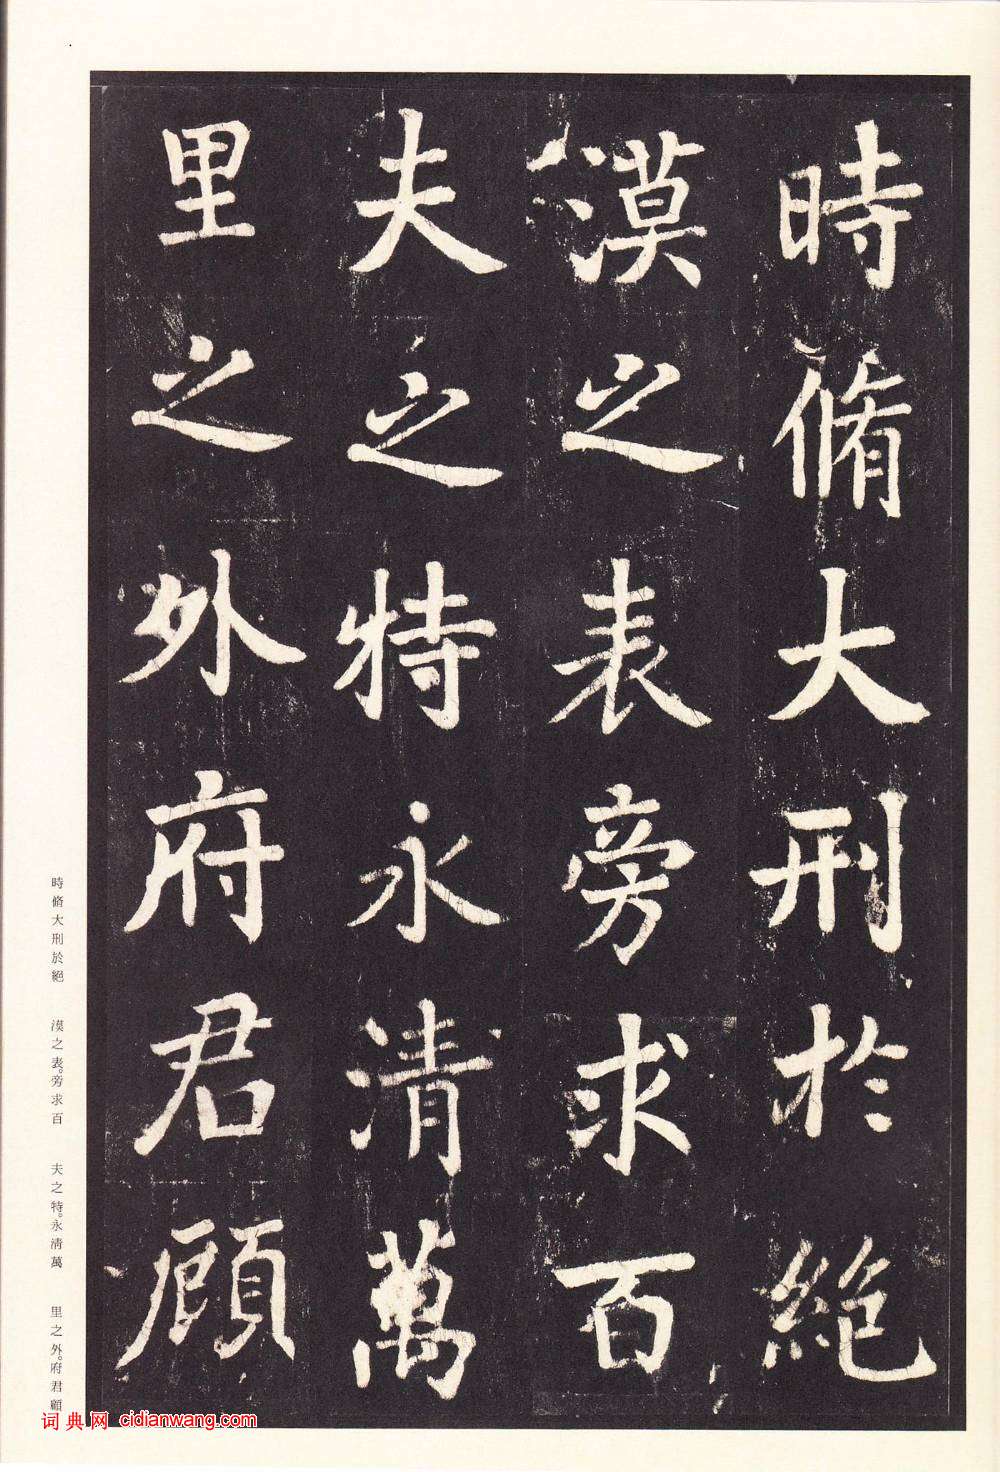 時脩大刑於絕
漠之表旁求百
夫之特永清萬
里之外府君顧
時脩大刑於絕　漠之表。旁求百　夫之特。永清萬　里之外。府君顧
词典网 cidianwang.com